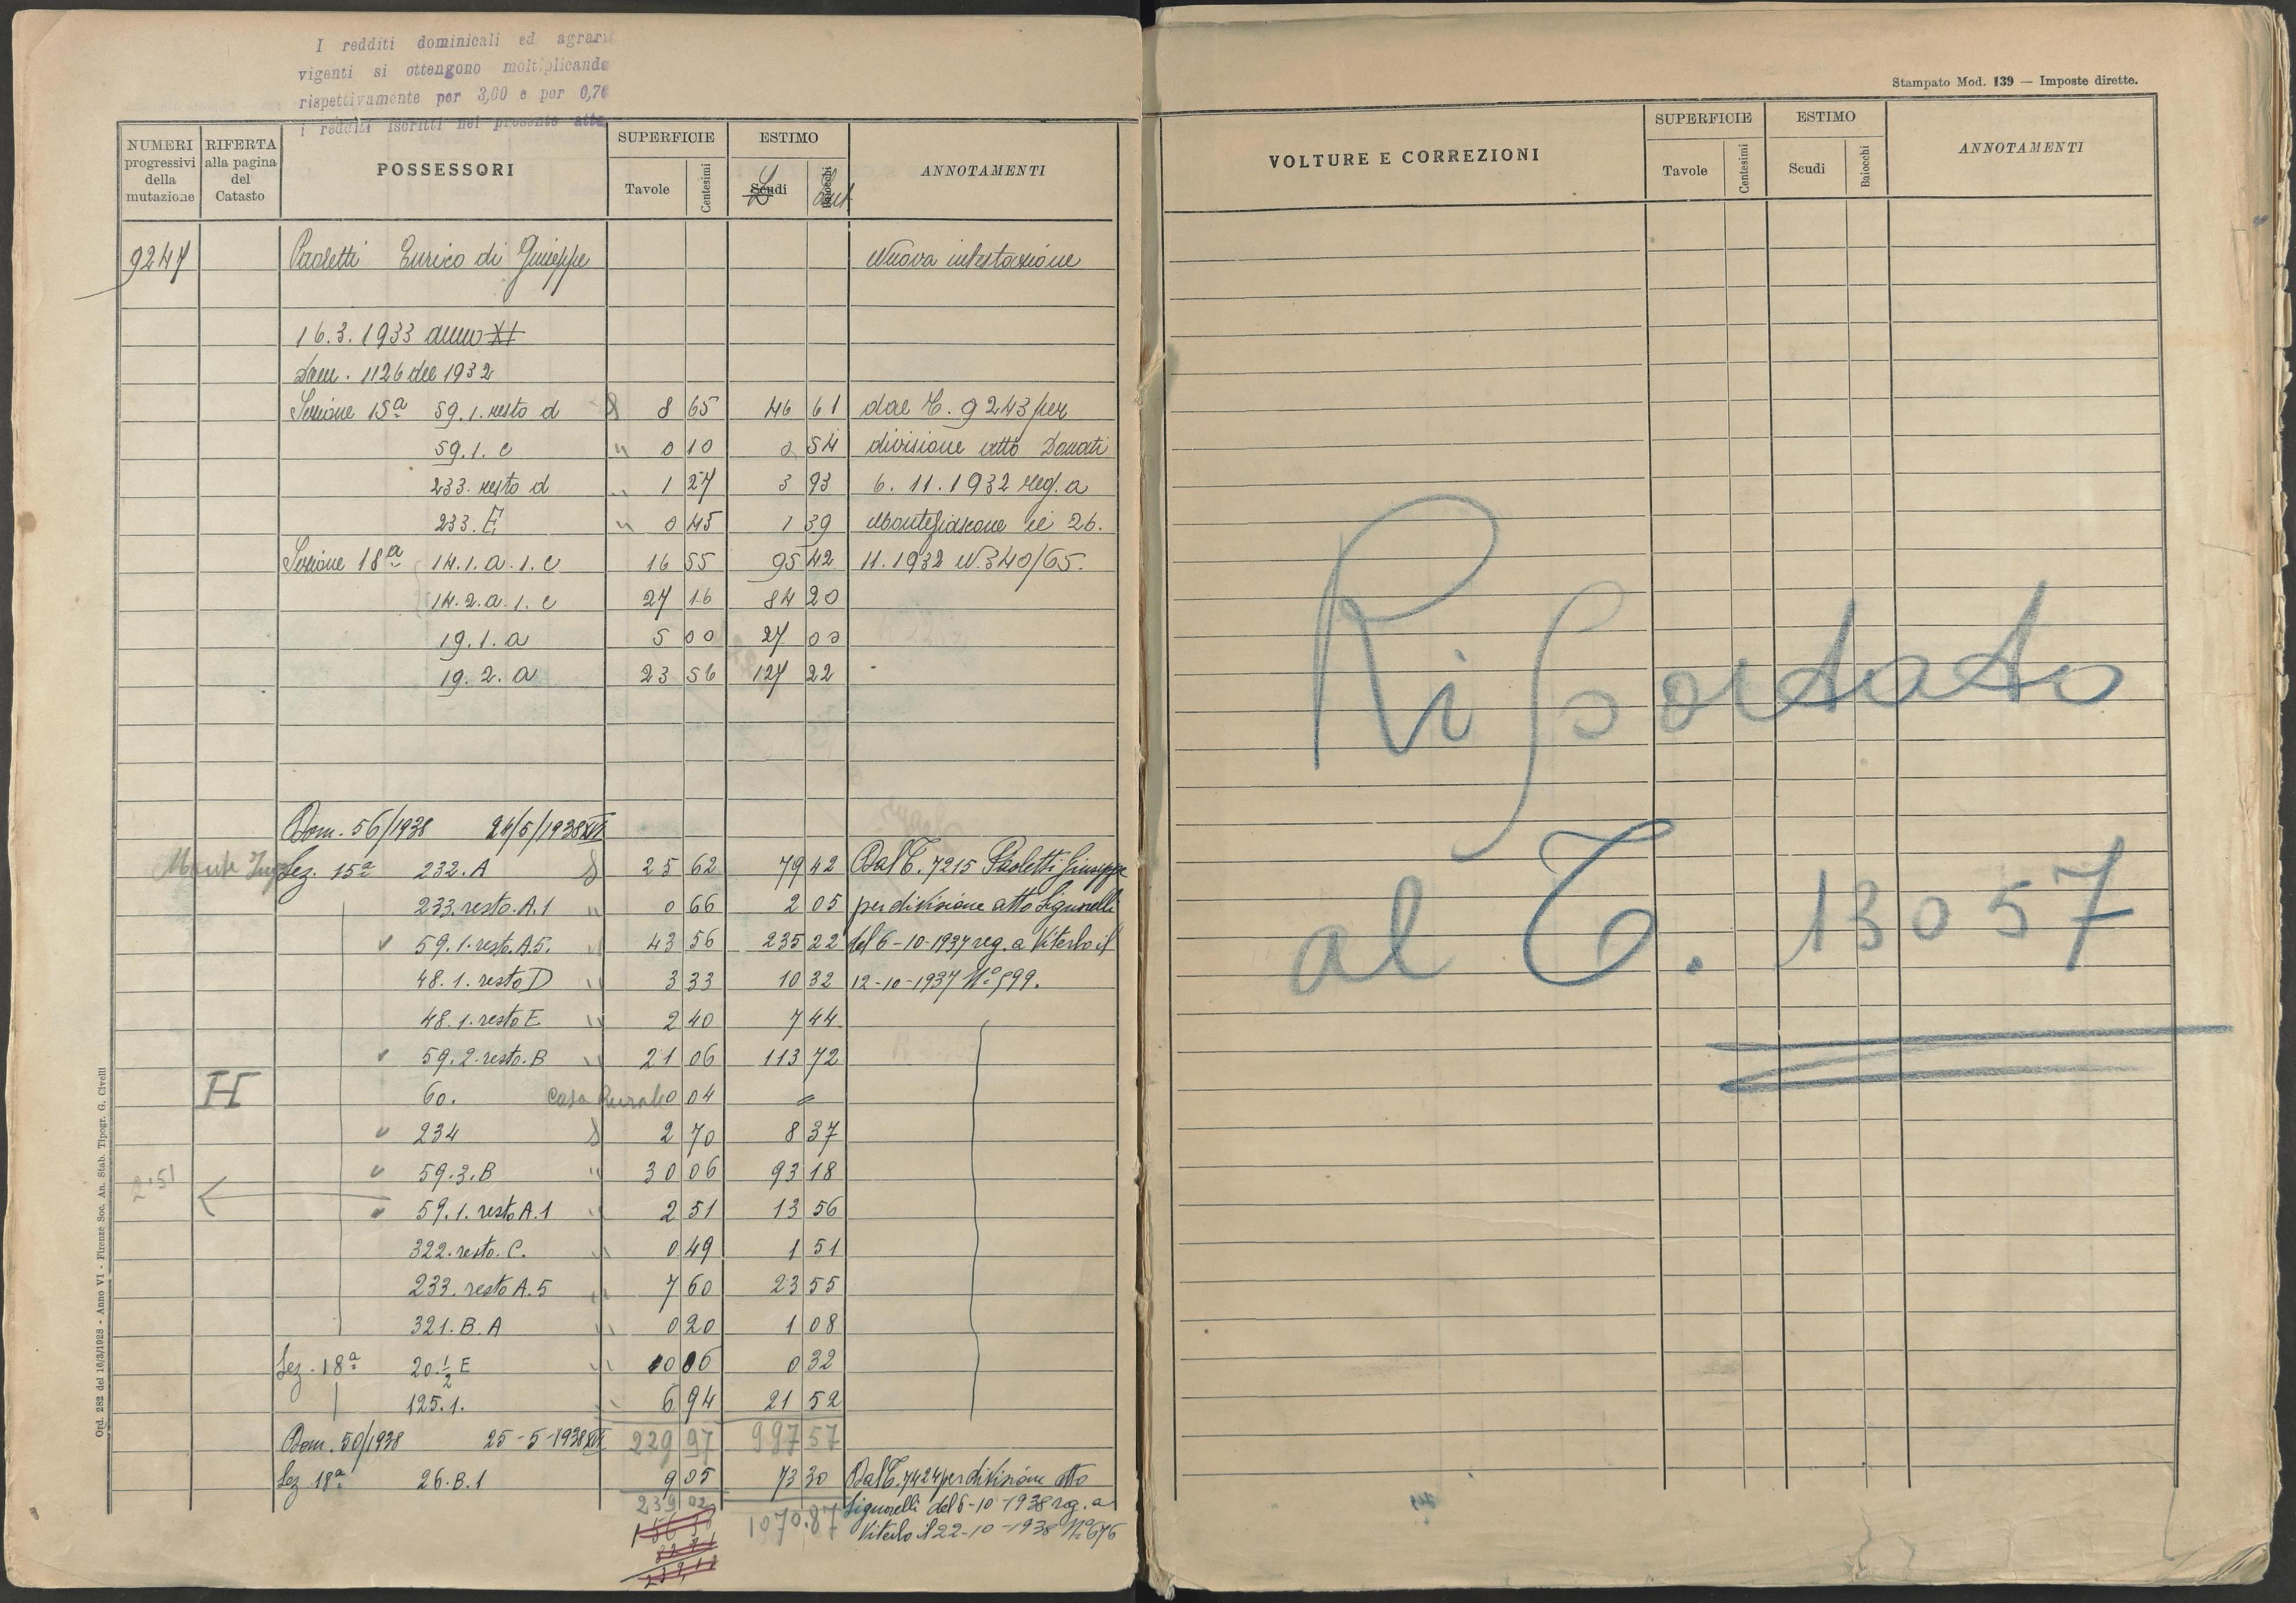 I redditi dominicali ed agrari
vigenti si ottengono moltiplicando
rispettivamente per 3,60 e per 0,70
i redditi iscritti nel presente atto
NUMERI progressivi della mutazione
RIFERTA alla pagina del Catasto
POSSESSORI
SUPERFICIE
Tavole
Centesimi
ESTIMO
Scudi
Baiocchi
ANNOTAMENTI
9247 Paoletti Enrico di Giuseppe Nuova intestazione
16.3.1933 anno XI
Dom. 1126 del 1932
Sezione 15ª 59.1. resto d 8 65 46 61 dal T. 9243 per
59.1. e " 0 10 0 54 divisione atto Donati
233. resto d " 1 27 3 93 6.11.1932 reg. a
233. E " 0 45 1 39 Montefiascone il 26.
Sezione 18ª 14.1.a.1.e 16 55 95 42 11.1932 N. 340/65.
14.2.a.1.e 27 16 84 20
19.1.a 5 00 27 00
19.2.a 23 56 127 22
Dom. 56/1938 24/5/1938 XVI
Monte
Sez. 15ª 232. A 25 62 79 42 Dal T. 7215 Paoletti Giuseppe
233. resto. A.1 " 0 66 2 05 per divisione atto Signorelli
59.1. resto. A5. " 43 56 235 22 del 6-10-1937 reg. a Viterbo il
48.1. resto D " 3 33 10 32 12-10-1937 Nº 599.
48.1. resto E " 2 40 7 44
59.2. resto. B " 21 06 113 72
H
60. Casa Rurale 0 04 "
234 2 70 8 37
59.3. B " 30 06 93 18
2.51
59.1. resto A.1 " 2 51 13 56
322. resto. C. " 0 49 1 51
233. resto A.5 " 7 60 23 55
321. B. A " 0 20 1 08
Sez. 18ª 20.½ E " 0 06 0 32
125.1. " 6 94 21 52
229 97 997 57
Dom. 50/1938 25-5-1938 XVI
Sez. 18ª 26. B. 1 9 05 73 30 Dal T. 7424 per divisione atto
239 02 1070.87 Signorelli del 6-10-1938 reg. a
Viterbo il 22-10-1938 Nº 676
Ord. 282 del 16/3/1928 - Anno VI - Firenze Soc. An. Stab. Tipogr. G. Civelli
Stampato Mod. 139 — Imposte dirette.
VOLTURE E CORREZIONI
SUPERFICIE
Tavole
Centesimi
ESTIMO
Scudi
Baiocchi
ANNOTAMENTI
Riportato
al T. 13057